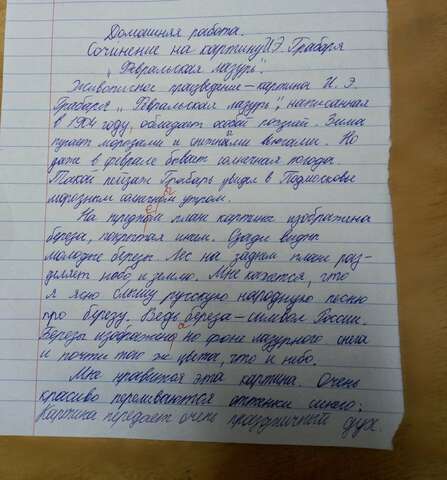 Домашняя работа.
Сочинение на картину И.Э. Грабаря
„Февральская лазурь".
Живописное произведение – картина И. Э.
Грабаря „Февральская лазурь", написанная
в 1904 году, обладает особой поэзией. Зима
пугает морозами и снежными вьюгами. Но
даже в феврале бывает солнечная погода.
Такой пейзаж Грабарь увидел в Подмосковье
морозным солнечным утром.
На переднем плане картине изображена
береза, покрытая инеем. Сзади видны
молодые березы. Лес на заднем плане раз-
деляет небо и землю. Мне кажется, что
я ясно слышу русскую народную песню
про березу. Ведь береза – символ России.
Березы изображены на фоне лазурного снега
и почти того же цвета, что и небо.
Мне нравится эта картина. Очень
красиво переливаются оттенки синего.
Картина передает очень праздничный дух.